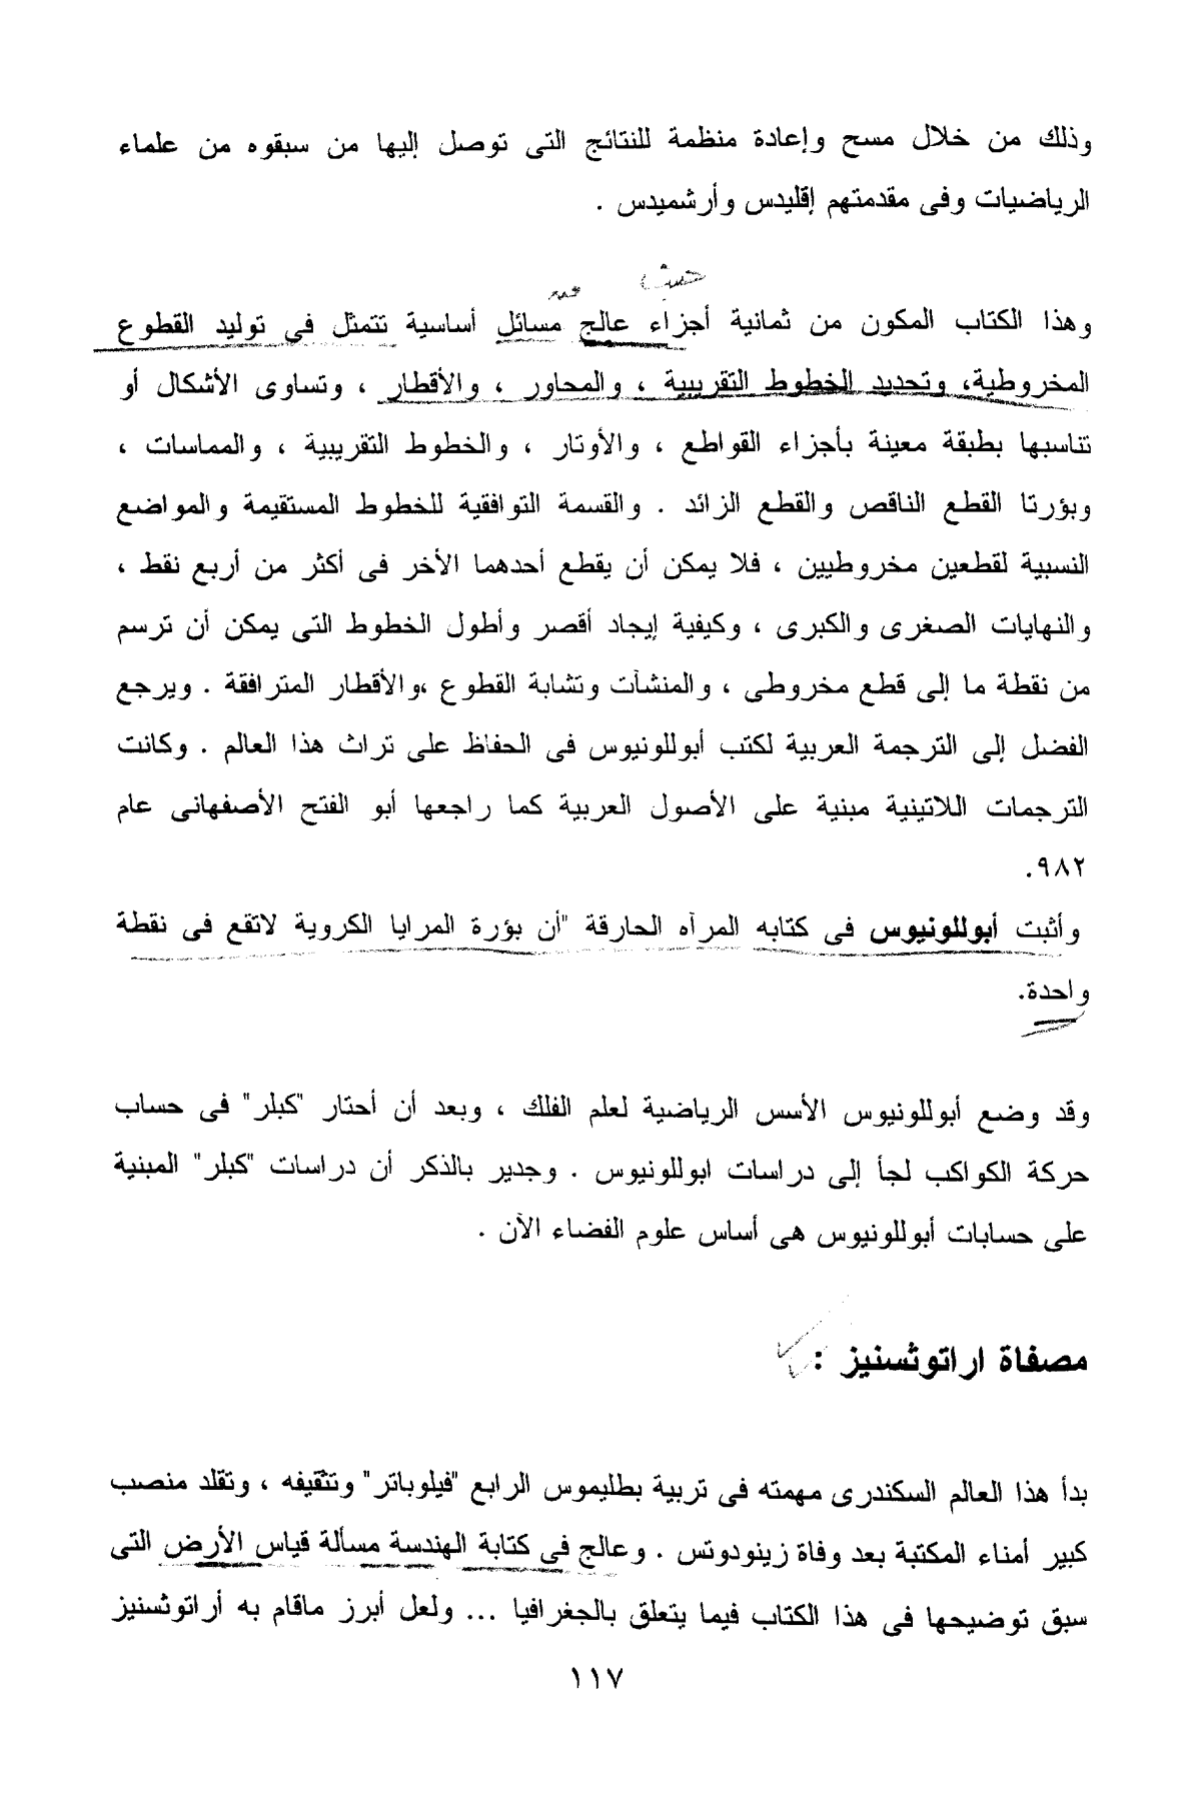 وذلك من خلال مسح وإعادة منظمة للنتائج التى توصل إليها من سبقوه من علماء
الرياضيات وفى مقدمتهم إقليدس وأرشميدس .
حيث
وهذا الكتاب المكون من ثمانية أجزاء عالج مسائل أساسية تتمثل فى توليد القطوع
المخروطية، وتحديد الخطوط التقريبية ، والمحاور ، والأقطار ، وتساوى الأشكال أو
تناسبها بطبقة معينة بأجزاء القواطع ، والأوتار ، والخطوط التقريبية ، والمماسات ،
وبؤرتا القطع الناقص والقطع الزائد . والقسمة التوافقية للخطوط المستقيمة والمواضع
النسبية لقطعين مخروطيين ، فلا يمكن أن يقطع أحدهما الأخر فى أكثر من أربع نقط ،
والنهايات الصغرى والكبرى ، وكيفية إيجاد أقصر وأطول الخطوط التى يمكن أن ترسم
من نقطة ما إلى قطع مخروطى ، والمنشآت وتشابة القطوع ،والأقطار المترافقة . ويرجع
الفضل إلى الترجمة العربية لكتب أبوللونيوس فى الحفاظ على تراث هذا العالم . وكانت
الترجمات اللاتينية مبنية على الأصول العربية كما راجعها أبو الفتح الأصفهانى عام
٩٨٢.
وأثبت أبوللونيوس فى كتابه المرآه الحارقة "أن بؤرة المرايا الكروية لاتقع فى نقطة
واحدة.
وقد وضع أبوللونيوس الأسس الرياضية لعلم الفلك ، وبعد أن أحتار "كبلر" فى حساب
حركة الكواكب لجأ إلى دراسات ابوللونيوس . وجدير بالذكر أن دراسات "كبلر" المبنية
على حسابات أبوللونيوس هى أساس علوم الفضاء الآن .
مصفاة اراتوثسنيز :
بدأ هذا العالم السكندرى مهمته فى تربية بطليموس الرابع "فيلوباتر" وتثقيفه ، وتقلد منصب
كبير أمناء المكتبة بعد وفاة زينودوتس . وعالج فى كتابة الهندسة مسألة قياس الأرض التى
سبق توضيحها فى هذا الكتاب فيما يتعلق بالجغرافيا ... ولعل أبرز ماقام به أراتوثسنيز
١١٧